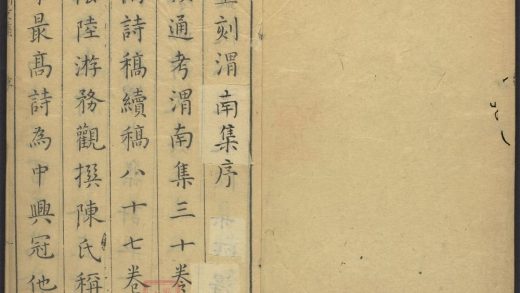 刻渭南集序
通考渭南集三十卷
詩稿續稿八十七卷
陸游務觀撰陳氏稱
最髙詩為中興冠他